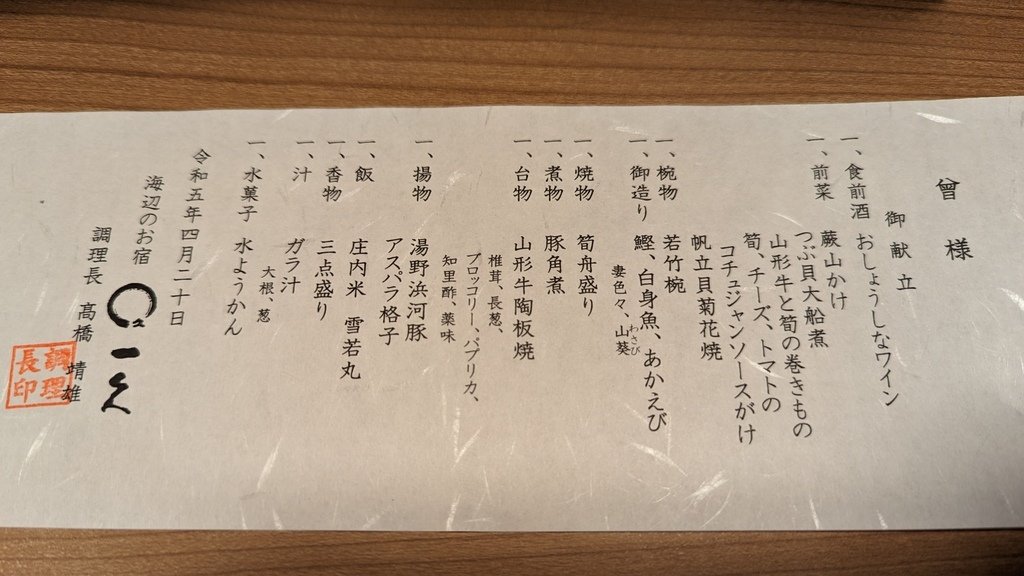 曾 様
御献立
一、食前酒 おしょうしなワイン
一、前菜 蕨山かけ
つぶ貝大船煮
山形牛と筍の巻きもの
筍、チーズ、トマトの
コチュジャンソースがけ
帆立貝菊花焼
一、椀物 若竹椀
一、御造り 鰹、白身魚、あかえび
妻色々、山葵
わさび
一、焼物 筍舟盛り
一、煮物 豚角煮
一、台物 山形牛陶板焼
椎茸、長葱、
ブロッコリー、パプリカ、
知里酢、薬味
一、揚物 湯野浜河豚
アスパラ格子
一、飯 庄内米 雪若丸
一、香物 三点盛り
一、汁 ガラ汁
大根、葱
一、水菓子 水ようかん
令和五年四月二十日
海辺のお宿 一久
調理長 高橋 靖雄
調理
長印